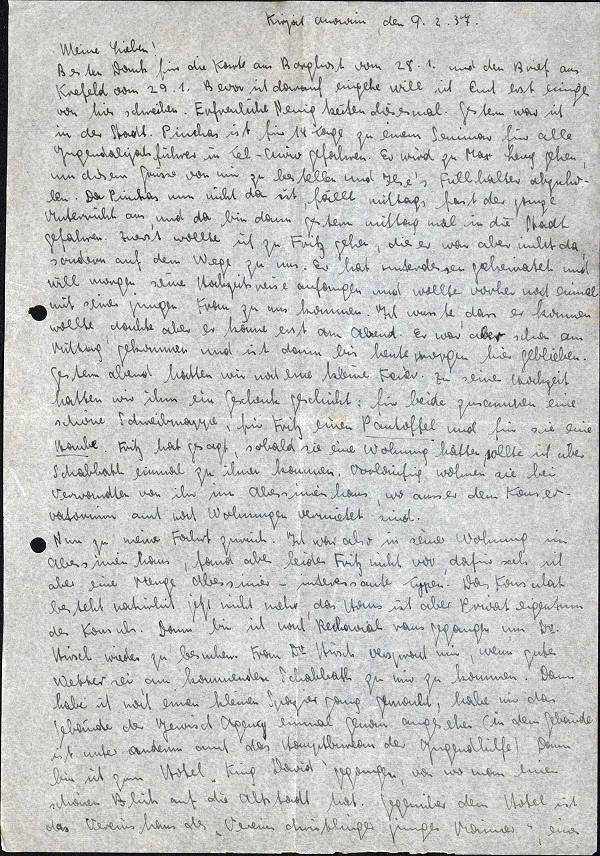 Kirjat Anavim den 9. 2. 37.
Meine Lieben!
Besten Dank für die Karte aus Borghorst vom 28.1. und den Brief aus
Krefeld vom 29.1. Bevor ich darauf eingehe will ich Euch erst einiges
von hier schreiben. Erfreuliche Neuigkeiten diesmal. Gestern war ich
in der Stadt. Pinchas ist für 14 Tage zu einem Seminar für alle
Jugendalijahführer in Tel-Awiw gefahren. Er wird zu Max gehen,
um diesem Grüsse von mir zu bestellen und Ilse's Füllhalter abzuho-
len. Da Pinchas nun nicht da ist, fällt mittags fast der ganze
Unterricht aus, und da bin dann gestern mittag mal in die Stadt
gefahren. Zuerst wollte ich zu Fritz gehen, der war aber nicht da,
sondern auf dem Wege zu uns. Er hat unterdessen geheiratet und
will morgen seine Hochzeitsreise anfangen und wollte vorher noch einmal
mit seiner jungen Frau zu uns kommen. Ich wusste dass er kommen
wollte dachte aber er käme erst am Abend. Er war aber schon am
Mittag gekommen und ist dann bis heute morgen hier geblieben.
Gestern abend hatten wir noch eine kleine Feier. Zu seiner Hochzeit
hatten wir ihm ein Geschenk geschickt: für beide zusammen eine
schöne Schreibmappe, für Fritz einen Pantoffel und für sie eine
Haube. Fritz hat gesagt, sobald sie eine Wohnung hätten, sollte ich über
Schabbath einmal zu ihnen kommen. Vorläufig wohnen sie bei
Verwandten von ihr im Abessinierhaus, wo ausser dem Konser-
vatorium auch noch Wohnungen vermietet sind.
Nun zu meiner Fahrt zurück. Ich war also in seiner Wohnung im
Abessinierhaus, fand aber leider Fritz nicht vor, dafür sah ich
aber eine Menge Abessinier - interessante Typen. Das Konsulat
besteht natürlich jetzt nicht mehr das Haus ist aber Privateigentum
des Konsuls. Dann bin ich nach Rechawiah rausgegangen um Dr.
Hirsch wieder zu besuchen. Frau Dr. Hirsch versprach mir, wenn gutes
Wetter sei am kommenden Schabbath zu mir zu kommen. Dann
habe ich noch einen kleinen Spaziergang gemacht, habe mir das
Gebäude der Jewish Agency einmal genau angesehen (in dem Gebäude
ist unter anderm auch das Hauptbureau der Jugendhilfe). Dann
bin ich zum Hotel „King David" gegangen, von wo man einen
schönen Blick auf die Altstadt hat. Gegenüber dem Hotel ist
das Vereinshaus des „Vereins christlicher junger Männer", eines